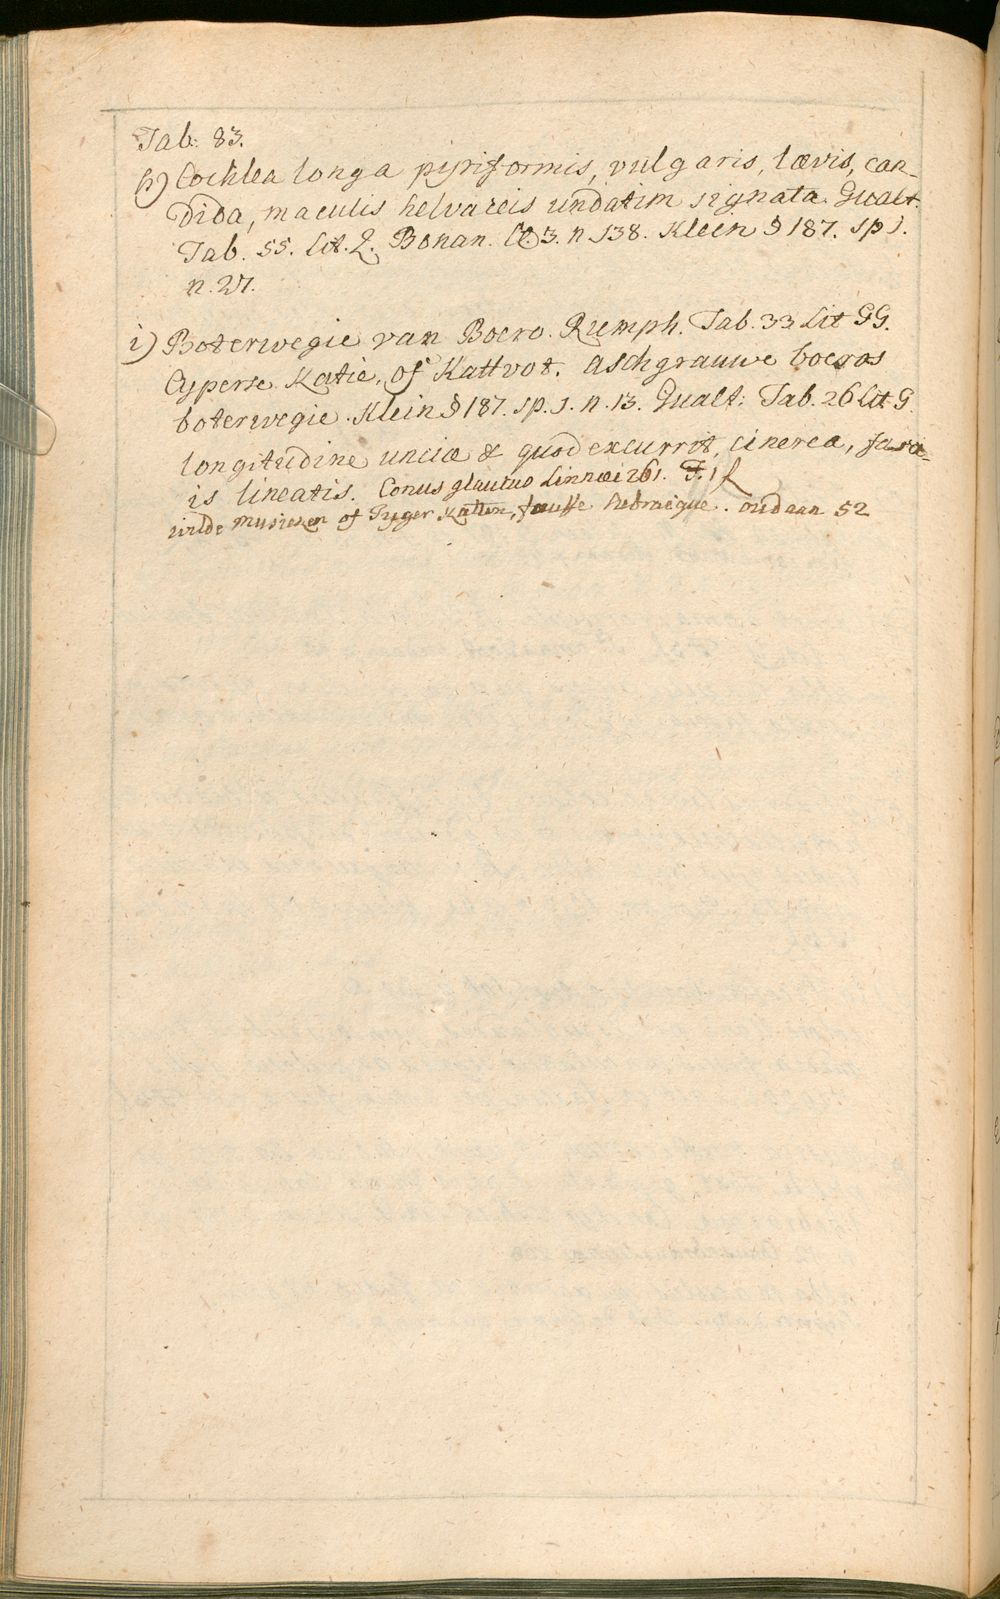 Tab: 83.
h) Cochlea longa pyriformis, vulgaris, lævis, can-
dida, maculis helvaceis undatim signata. Gualt.
Tab. 55. Lit. Q. Bonan. Cl. 3. n 138. Klein § 187. sp 1.
n. 27.
i) Boterwegie van Boero. Rumph. Tab. 33 Lit GG.
Cyperse Katie, of Kattvot. Aschgrauwe boeros
boterwegie. Klein § 187. sp. 1. n. 13. Gualt: Tab. 26 Lit G
longitudine unciæ & quod excurrit, cinerea,
is lineatis. Conus glaucus Linnæi 261. F. 1 f
wilde Musieken of Tyger Katten, fausse hebraique. oudaan 52